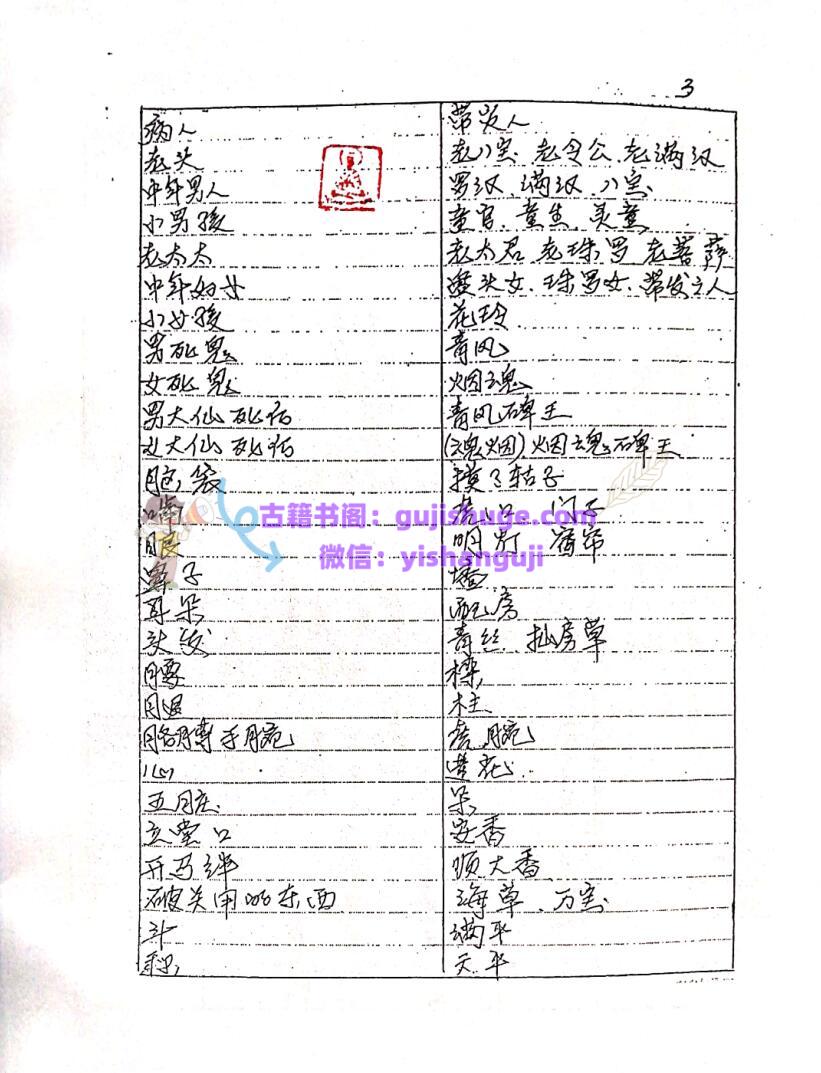 3
病人 带炭人
老头 老八宝、老令公、老满汉
中年男人 男汉、满汉、八宝
小男孩 童官、童生、灵童
老太太 老太君、老珠罗 老菩萨
中年妇女 头女、珠罗女、带发之人
小女孩 花玲
男死鬼 青风
女死鬼 烟魂
男大仙死后 青风碑王
女大仙死后 (魂烟)烟魂碑王
脑袋
嘴 口 门子
眼 明灯 窗帘
鼻子
耳朵 配房
头发 青丝 房草
腰 梁
腿 柱
胳膊手腕 腕
心 莲花
五脏 朵
立堂口 安香
开马绊 顶大香
破关用的东西 海草、万宝
斗 满平
天平
古籍书阁：gujishuge.com
微信：yishanguji